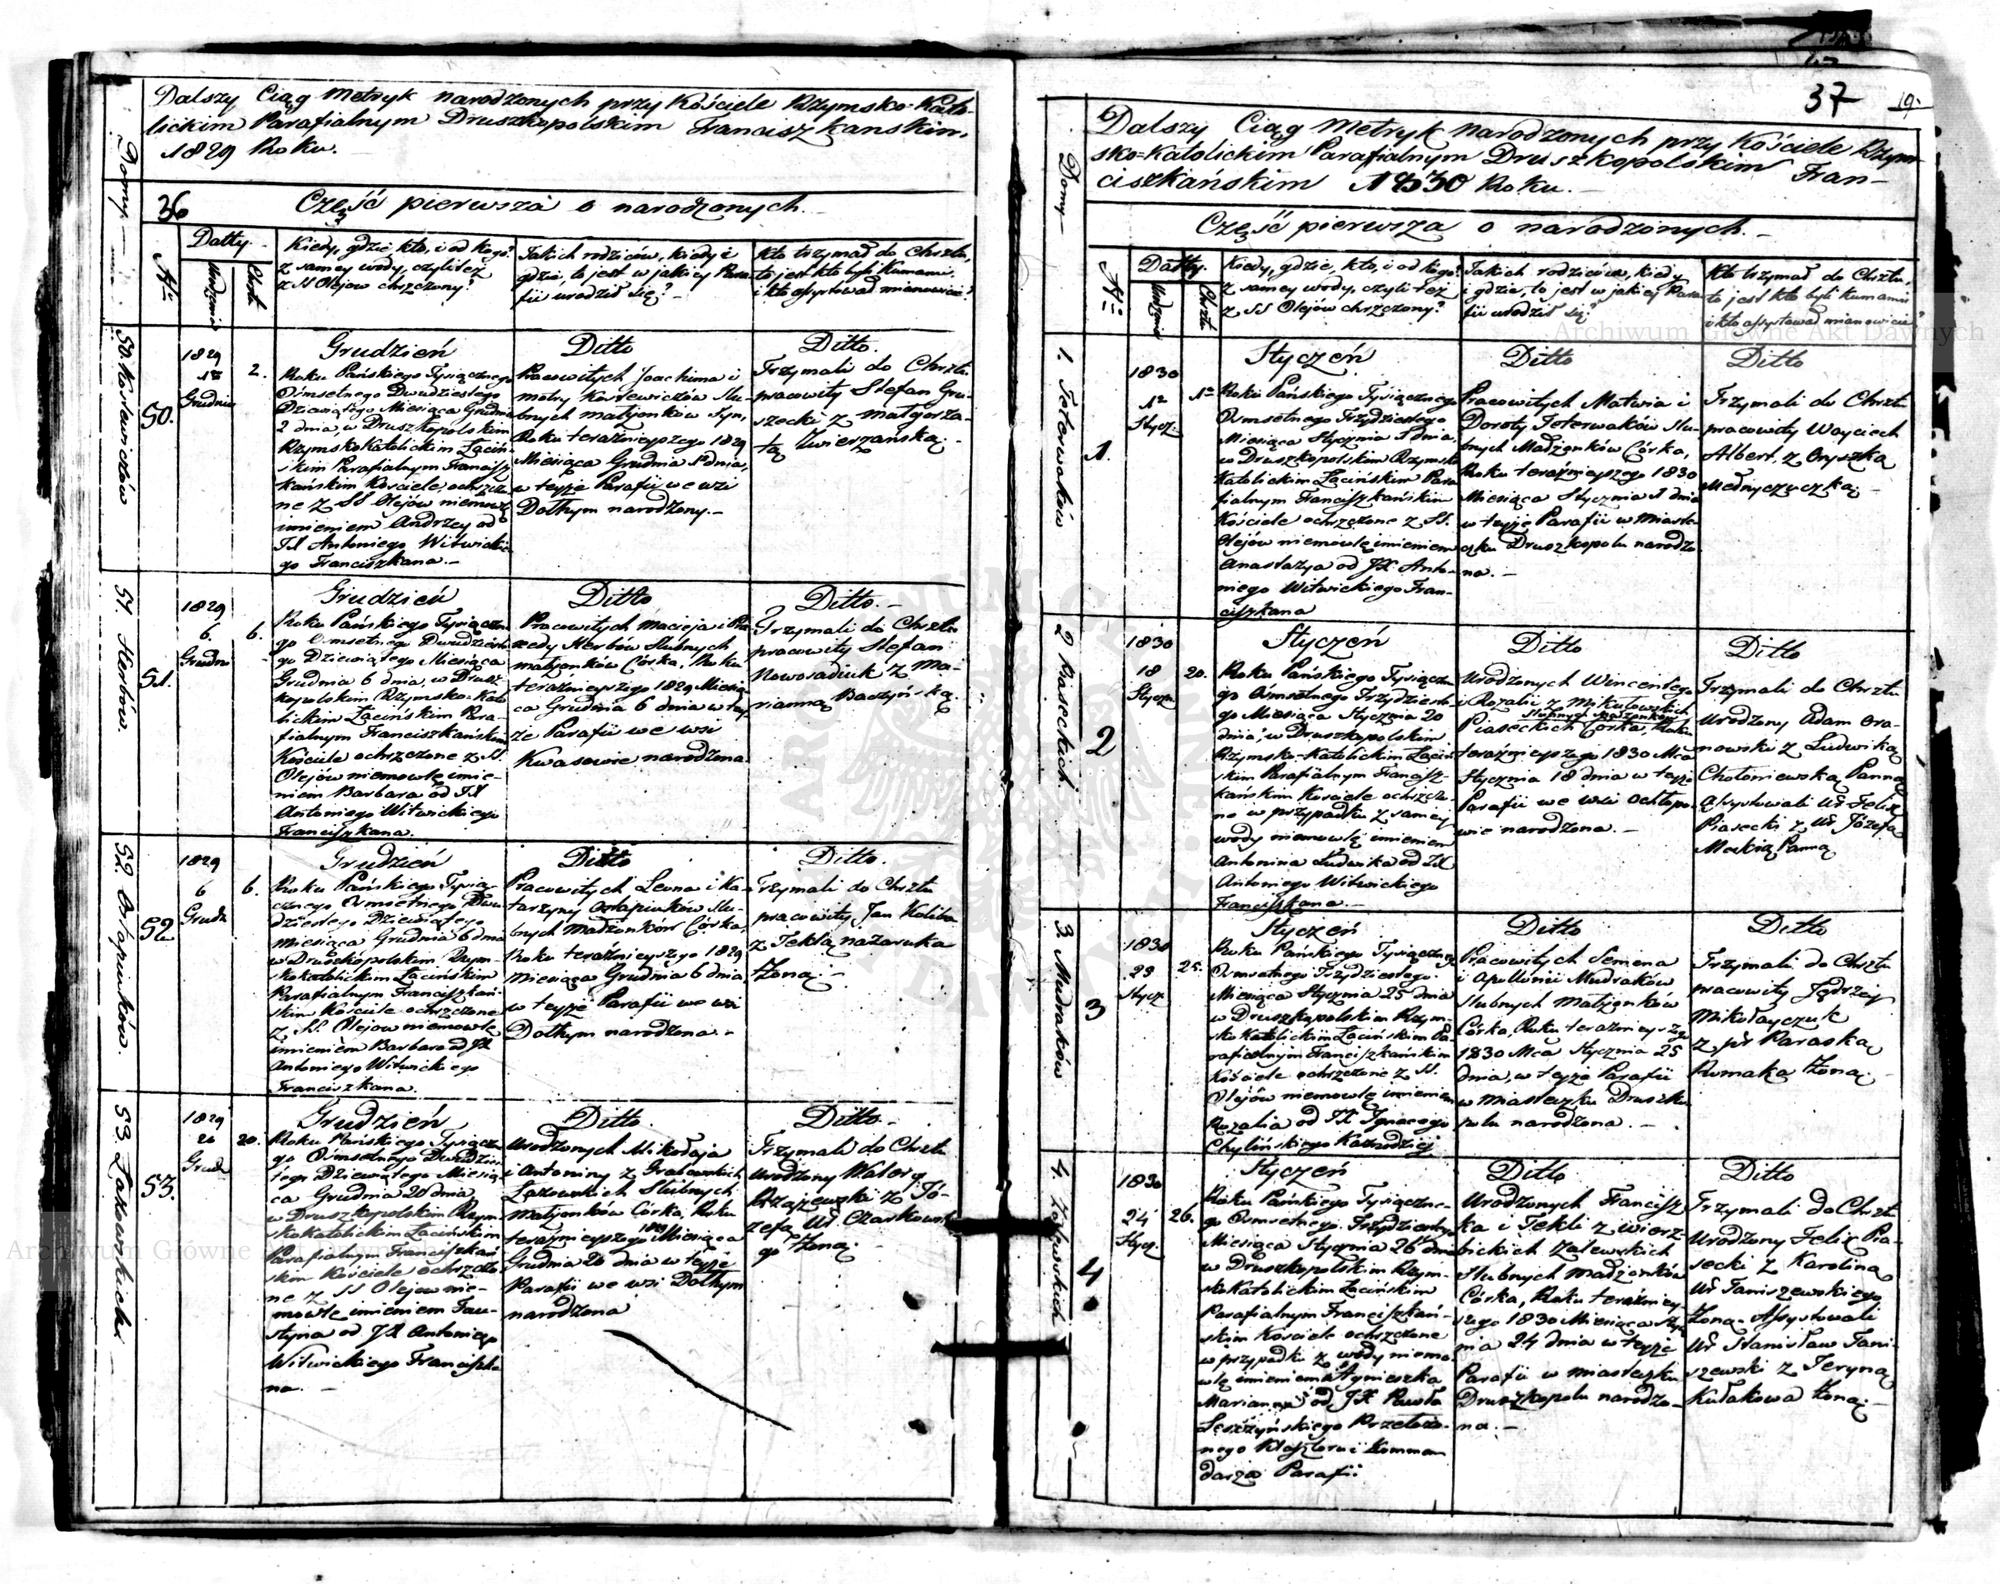 Dalszy Ciąg Metryk narodzonych przy Kościele Rzymsko-Kato-
lickim Parafialnym Druszkopolskim Franciszkanskim
1829 Roku.
36
Część pierwsza o narodzonych.
Domy
Nro
Datty
Urodzenia
Chrztu
Kiedy, gdzie kto, i od kogo?
z samey wody, czyli też
z SS Olejow chrzczony?
Jakich rodziców, kiedy i
gdzie, to jest w jakiey Para-
fii urodził się?
Kto trzymał do Chrztu,
to jest kto byli Kumami,
i kto assystował mianowicie?
50. Kosławiczów
50.
1829
1a
Grudnia
2.
Grudzień
Roku Pańskiego Tysiącznego
Ośmsetnego Dwudziestego
Dziewiątego Miesiąca Grudnia
2 dnia, w Druszkopolskim
Rzymsko Katolickim Łaciń-
skim Parafialnym Francisz-
kańskim Kościele, ochrzczo-
ne z SS Olejów niemowlę
imieniem Andrzey od
JX Antoniego Witwickie-
go Franciszkana.
Ditto
Pracowitych Joachima i
Motry Kosłewiczów Slu-
bnych małżonków Syn,
Roku teraźnieyszego 1829
Miesiąca Grudnia 1 dnia,
w teyże Parafii we wsi
Dołhym narodzony.
Ditto.
Trzymali do Chrztu
pracowity Stefan Gru-
szecki z Małgorza-
tą Zwierzańską.
51. Herbów.
51.
1829
6.
Grudnia
6.
Grudzień
Roku Pańskiego Tysiączne-
go Ośmsetnego Dwudzieste-
go Dziewiątego Miesiąca
Grudnia 6 dnia, w Drusz-
kopolskim Rzymsko-Kato-
lickim Łacińskim Para-
fialnym Franciszkańskim
Kościele ochrzczone z SS.
Olejów niemowlę imie-
niem Barbara od JX
Antoniego Witwickiego
Franciszkana.
Ditto
Pracowitych Macieja i Pra-
xedy Herbów Slubnych
małżonków Córka, Roku
teraźnieyszego 1829 Miesią-
ca Grudnia 6 dnia w tey-
że Parafii we wsi
Kwasowie narodzona
Ditto.
Trzymali do Chrztu
pracowity Stefan
Nowosadiuk z Ma-
rianną Baczyńską.
52. Ostapiuków.
52
1829
6
Grudn
6.
Grudzień
Roku Pańskiego Tysią-
cznego Ośmsetnego Dwu-
dziestego Dziewiątego
Miesiąca Grudnia 6 dnia
w Druszkopolskim Rzym-
skokatolickim Łacińskim
Parafialnym Franciszkań-
skim Kościele ochrzczone
z SS. Olejow niemowlę
imieniem Barbara od JX
Antoniego Witwickiego
Franciszkana.
Ditto
Pracowitych Leona i Ka-
tarzyny Ostapiuków Slu-
bnych Madżonków Córka,
Roku teraźnieyszego 1829
Miesiąca Grudnia 6 dnia,
w teyże Parafii we wsi
Dołhym narodzona.
Ditto.
Trzymali do Chrztu
pracowity Jan Koliba
z Teklą Nazaruka
Żoną.
53 Łazowskich
53.
1829
20
Grudn
20.
Grudzień
Roku Pańskiego Tysiączne-
go Ośmsetnego Dwudzies-
tego Dziewiątego Miesią-
ca Grudnia 20 dnia,
w Druszkopolskim Rzym-
skokatolickim Łacińskim
Parafialnym Franciszkań-
skim Kościele ochrzczo-
ne z SS Olejow nie-
mowlę imieniem Fau-
styna od JX Antoniego
Witwickiego Franciszka-
na.
Ditto
Urodzonych Mikołaja
i Antoniny z Grabowskich
Łazowskich Slubnych
Małżonków Córka, Roku
teraźnieyszego 1829 Miesiąca
Grudnia 20 dnia w teyże
Parafii we wsi Dołhym
narodzona
Ditto.
Trzymali do Chrztu
Urodzony Walery
Krzajewski z Jó-
zefą Ur Czarkowskie-
go Żoną.
37
19.
Dalszy Ciąg Metryk narodzonych przy Kościele Rzym-
sko-Katolickim Parafialnym Druszkopolskim Fran-
ciszkańskim 1830 Roku.
Część pierwsza o narodzonych.
Domy
Nro
Datty.
Urodzenia
Chrztu
Kiedy, gdzie, kto, i od kogo?
z samey wody, czyli też
z SS Olejów chrzczony?
Jakich rodziców, kiedy
i gdzie, to jest w jakiey Para-
fii urodził się?
Kto trzymał do Chrztu,
to jest kto byli Kumami
i kto assystował mianowicie?
1. Teterwaków
1.
1830
1a
Stycz.
1a
Styczeń
Roku Pańskiego Tysiącznego
Ośmsetnego Trzydziestego
Miesiąca Stycznia 1 dnia,
w Druszkopolskim Rzymsko
Katolickim Łacińskim Para-
fialnym Franciszkańskim
Kościele ochrzczone z SS.
Olejów niemowlę imieniem
Anastazya od JX Anto-
niego Witwickiego Fran-
ciszkana
Ditto
Pracowitych Matwia i
Doroty Teterwaków Slu-
bnych Madżonków Córka,
Roku teraźnieyszego 1830
Miesiąca Stycznia 1 dnia
w teyże Parafii w Miaste-
czku Druszkopolu narodzo-
na.
Ditto
Trzymali do Chrztu
pracowity Woyciech
Albert z Oryszką
Melniczuczką.
2 Piaseckich.
2
1830
18
Stycz.
20.
Styczeń
Roku Pańskiego Tysiączne-
go Ośmsetnego Trzydzieste-
go Miesiąca Stycznia 20
dnia, w Druszkopolskim
Rzymsko-Katolickim Łaciń-
skim Parafialnym Francisz-
kańskim Kościele ochrzczo-
no w przypadku z samey
wody niemowlę imieniem
Antonina Ludwika od JX
Antoniego Witwickiego
Franciszkana.
Ditto
Urodzonych Wincentego
i Rozalii z Mikułowskich
Slubnych Małżonków
Piaseckich Córka, Roku
teraźnieyszego 1830 Mca
Stycznia 18 dnia w teyże
Parafii we wsi Ochłopo-
wie narodzona.
Ditto
Trzymali do Chrztu
Urodzony Adam Ora-
nowski z Ludwiką
Chołoniewską Panną
Assystowali Ur Felix
Piasecki z Ur Józefą
Panną
3 Mudraków
3
1830
25
Stycz
25.
Styczeń
Roku Pańskiego Tysiącznego
Ośmsetnego Trzydziestego
Miesiąca Stycznia 25 dnia
w Druszkopolskim Rzym-
sko Katolickim Łacińskim Pa-
rafialnym Franciszkańskim
Kościele ochrzczone z SS.
Olejów niemowlę imieniem
Rozalia od JX Ignacego
Chylińskiego Kaznodziej
Ditto
Pracowitych Semena
i Apollonii Mudraków
Slubnych Małżonków
Córka, Roku teraźnieyszego
1830 Mca Stycznia 25
dnia, w teyże Parafii
w Miasteczku Druszko-
polu narodzona.
Ditto
Trzymali do Chrztu
pracowity Jędrzej
Mikołayczuk
z pr Paraską
Rumaka Żoną.
4. Zalewskich
4
1830
24
Stycz.
26.
Styczeń
Roku Pańskiego Tysiączne-
go Ośmsetnego Trzydziestego
Miesiąca Stycznia 26 dnia
w Druszkopolskim Rzym-
skokatolickim Łacińskim
Parafialnym Franciszkań-
skim Kościele ochrzczone
w przypadku z wody niemo-
wlę imieniem Agnieszka
Marianna od JX Pawła
Leszczyńskiego Przełożo-
nego Klasztoru i Kommen-
darza Parafii
Ditto
Urodzonych Francisz-
ka i Tekli z Wierz-
bickich Zalewskich
Slubnych Madżonków
Córka, Roku teraźniey-
szego 1830 Miesiąca Stycz-
nia 24 dnia w teyże
Parafii w miasteczku
Druszkopolu narodzo-
na.
Ditto
Trzymali do Chrztu
Urodzony Felix Pia-
secki z Karoliną
Ur Janiszewskiego
Żoną. Assystowali
Ur Stanisław Jani-
szewski z Teryną
Kułakowa Żoną.
Archiwum Główne Akt Dawnych
Archiwum Główne Akt Dawnych